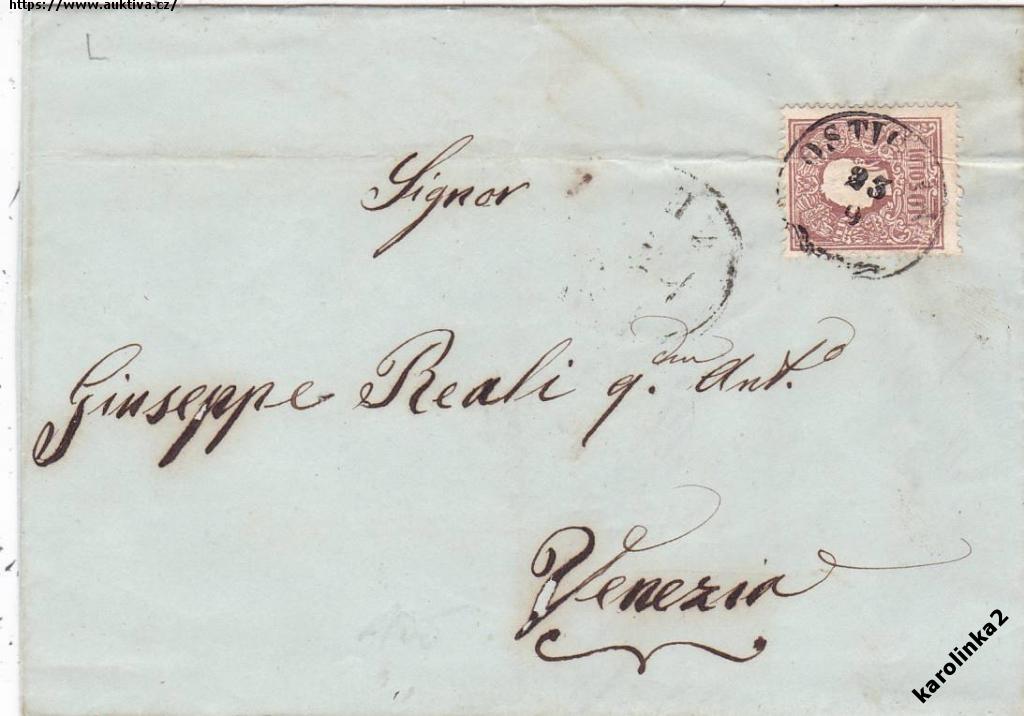 https://www.auktiva.cz/
L
OSTIG
23
9
10 SOLDI
Signor
Giuseppe Reali q.dm Ant.o
Venezia
karolinka2